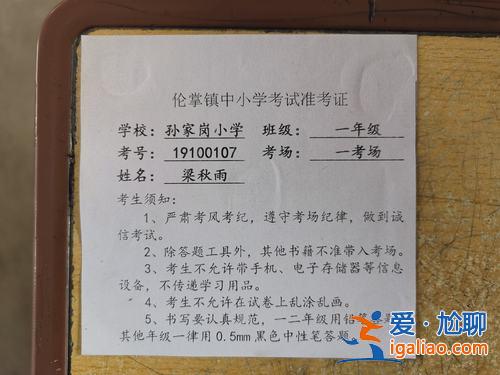 伦掌镇中小学考试准考证
学校：孙家岗小学 班级：一年级
考号：19100107 考场：一考场
姓名：梁秋雨
考生须知：
1、严肃考风考纪，遵守考场纪律，做到诚
信考试。
2、除答题工具外，其他书籍不准带入考场。
3、考生不允许带手机、电子存储器等信息
设备，不传递学习用品。
4、考生不允许在试卷上乱涂乱画。
5、书写要认真规范，一二年级用铅
其他年级一律用0.5mm黑色中性笔答题
爱·尬聊
igaliao.com